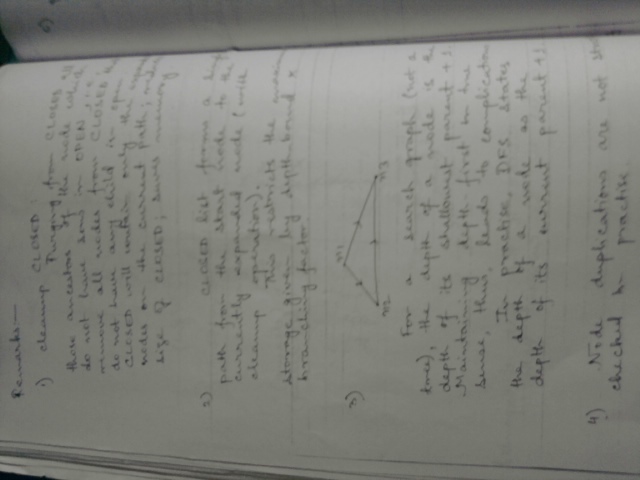 Remarks:—
1) cleanup CLOSED:
Purging from CLOSED all
those ancestors of the node which
do not have sons in OPEN i.e.
remove all nodes from CLOSED
do not have any child in open
CLOSED will contain only the
nodes on the current path;
size of CLOSED; saves memory
2) CLOSED list forms a
path from the start node to the
currently expanded node (with
cleanup operation).
This restricts the
storage given by depth bound x
branching factor
3)
n1
n2
n3
For a search graph (not a
tree), the depth of a node is the
depth of its shallowest parent + 1.
Maintaining depth first in true
sense, thus, leads to complication
In practise, DFS states
the depth of a node as the
depth of its current parent + 1.
4) Node duplications are not
checked in practise.